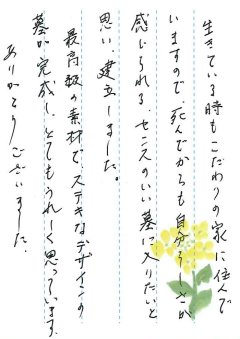 生きている時もこだわりの家に住んで
いますので、死んでからも自分らしさが
感じられる、センスのいい墓に入りたいと
思い、建立しました。
最高級の素材で、ステキなデザインの
墓が完成し、とてもうれしく思っています。
ありがとうございました。